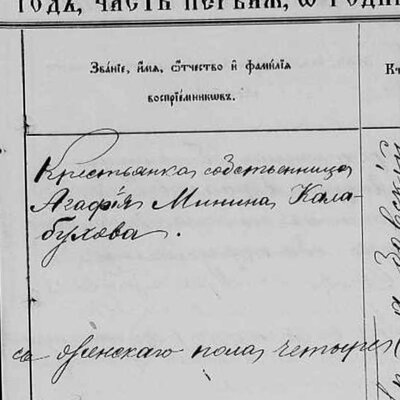 ГОДЪ, ЧАСТЬ ПЕРВАЯ, Ѡ РОДИ
Зва́нїе, и҆́мѧ, ѻ҆́тчество и҆ фамѝлїѧ
воспрїе́мникѡвъ.
К
Крестьянка собственница
Агафія Минина Кала-
бухова.
женскаго пола четыре